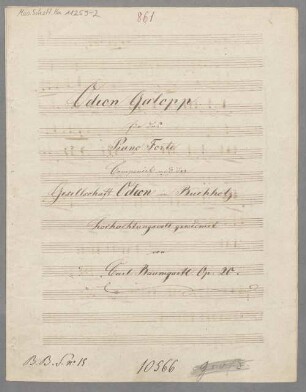 Mus. Schott. Ha 11259-2
861
Odeon Galopp
für das
Piano Forte
Componirt und der
Gesellschaft Odeon in Buchholz
hochachtungsvoll gewidmet
von
Carl Baumgartl. Op. 20.
B. B. S. No 15
10566